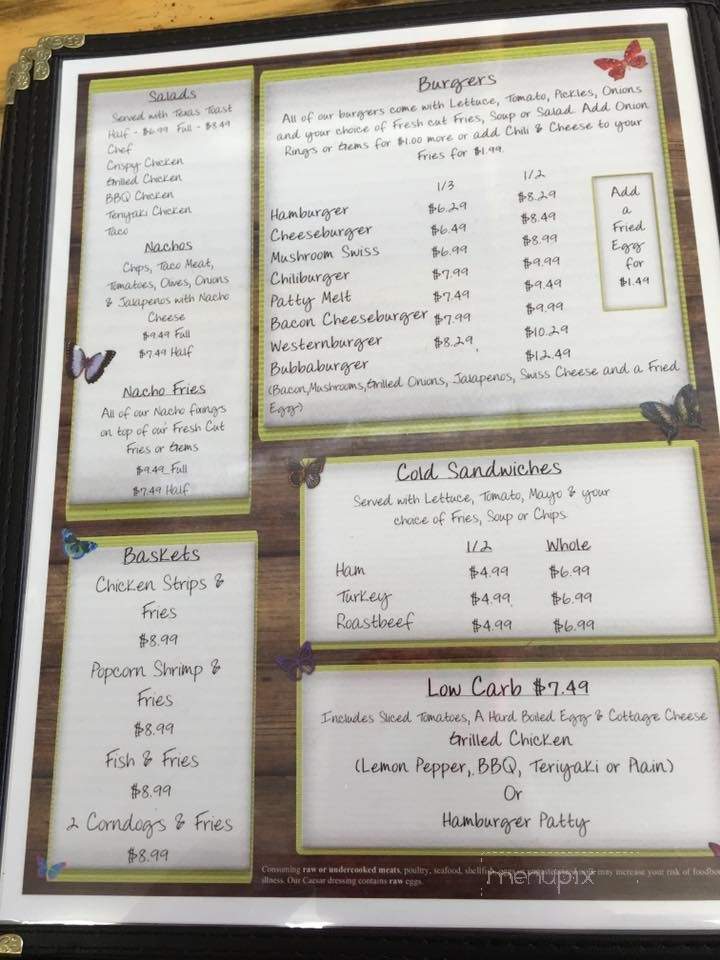 Salads
Served with Texas Toast
Half - $6.99 Full - $8.49
Chef
Crispy Chicken
Grilled Chicken
BBQ Chicken
Teriyaki Chicken
Taco
Nachos
Chips, Taco Meat,
Tomatoes, Olives, Onions
& Jalapenos with Nacho
Cheese
$9.49 Full
$7.49 Half
Nacho Fries
All of our Nacho fixings
on top of our Fresh Cut
Fries or Gems
$9.49 Full
$7.49 Half
Baskets
Chicken Strips &
Fries
$8.99
Popcorn Shrimp &
Fries
$8.99
Fish & Fries
$8.99
2 Corndogs & Fries
$8.99
Burgers
All of our burgers come with Lettuce, Tomato, Pickles, Onions
and your choice of Fresh cut Fries, Soup or Salad. Add Onion
Rings or Gems for $1.00 more or add Chili & Cheese to your
Fries for $1.99.
1/3 1/2
Hamburger $6.29 $8.29
Cheeseburger $6.49 $8.49
Mushroom Swiss $6.99 $8.99
Chiliburger $7.99 $9.99
Patty Melt $7.49 $9.49
Bacon Cheeseburger $7.99 $9.99
Westernburger $8.29 $10.29
Bubbaburger $12.49
(Bacon, Mushrooms, Grilled Onions, Jalapenos, Swiss Cheese and a Fried
Egg)
Add
a
Fried
Egg
for
$1.49
Cold Sandwiches
Served with Lettuce, Tomato, Mayo & your
choice of Fries, Soup or Chips
1/2 Whole
Ham $4.99 $6.99
Turkey $4.99 $6.99
Roastbeef $4.99 $6.99
Low Carb $7.49
Includes Sliced Tomatoes, A Hard Boiled Egg & Cottage Cheese
Grilled Chicken
(Lemon Pepper, BBQ, Teriyaki or Plain)
Or
Hamburger Patty
Consuming raw or undercooked meats, poultry, seafood, shellfish may increase your risk of
illness. Our Caesar dressing contains raw eggs.
menupix